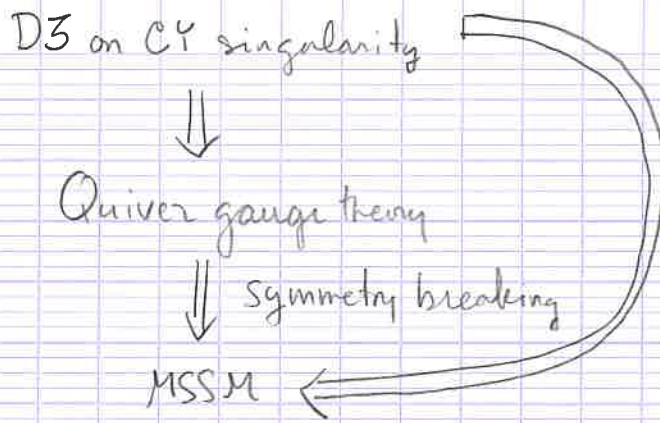 D3 on CY singularity
Quiver gauge theory
symmetry breaking
MSSM